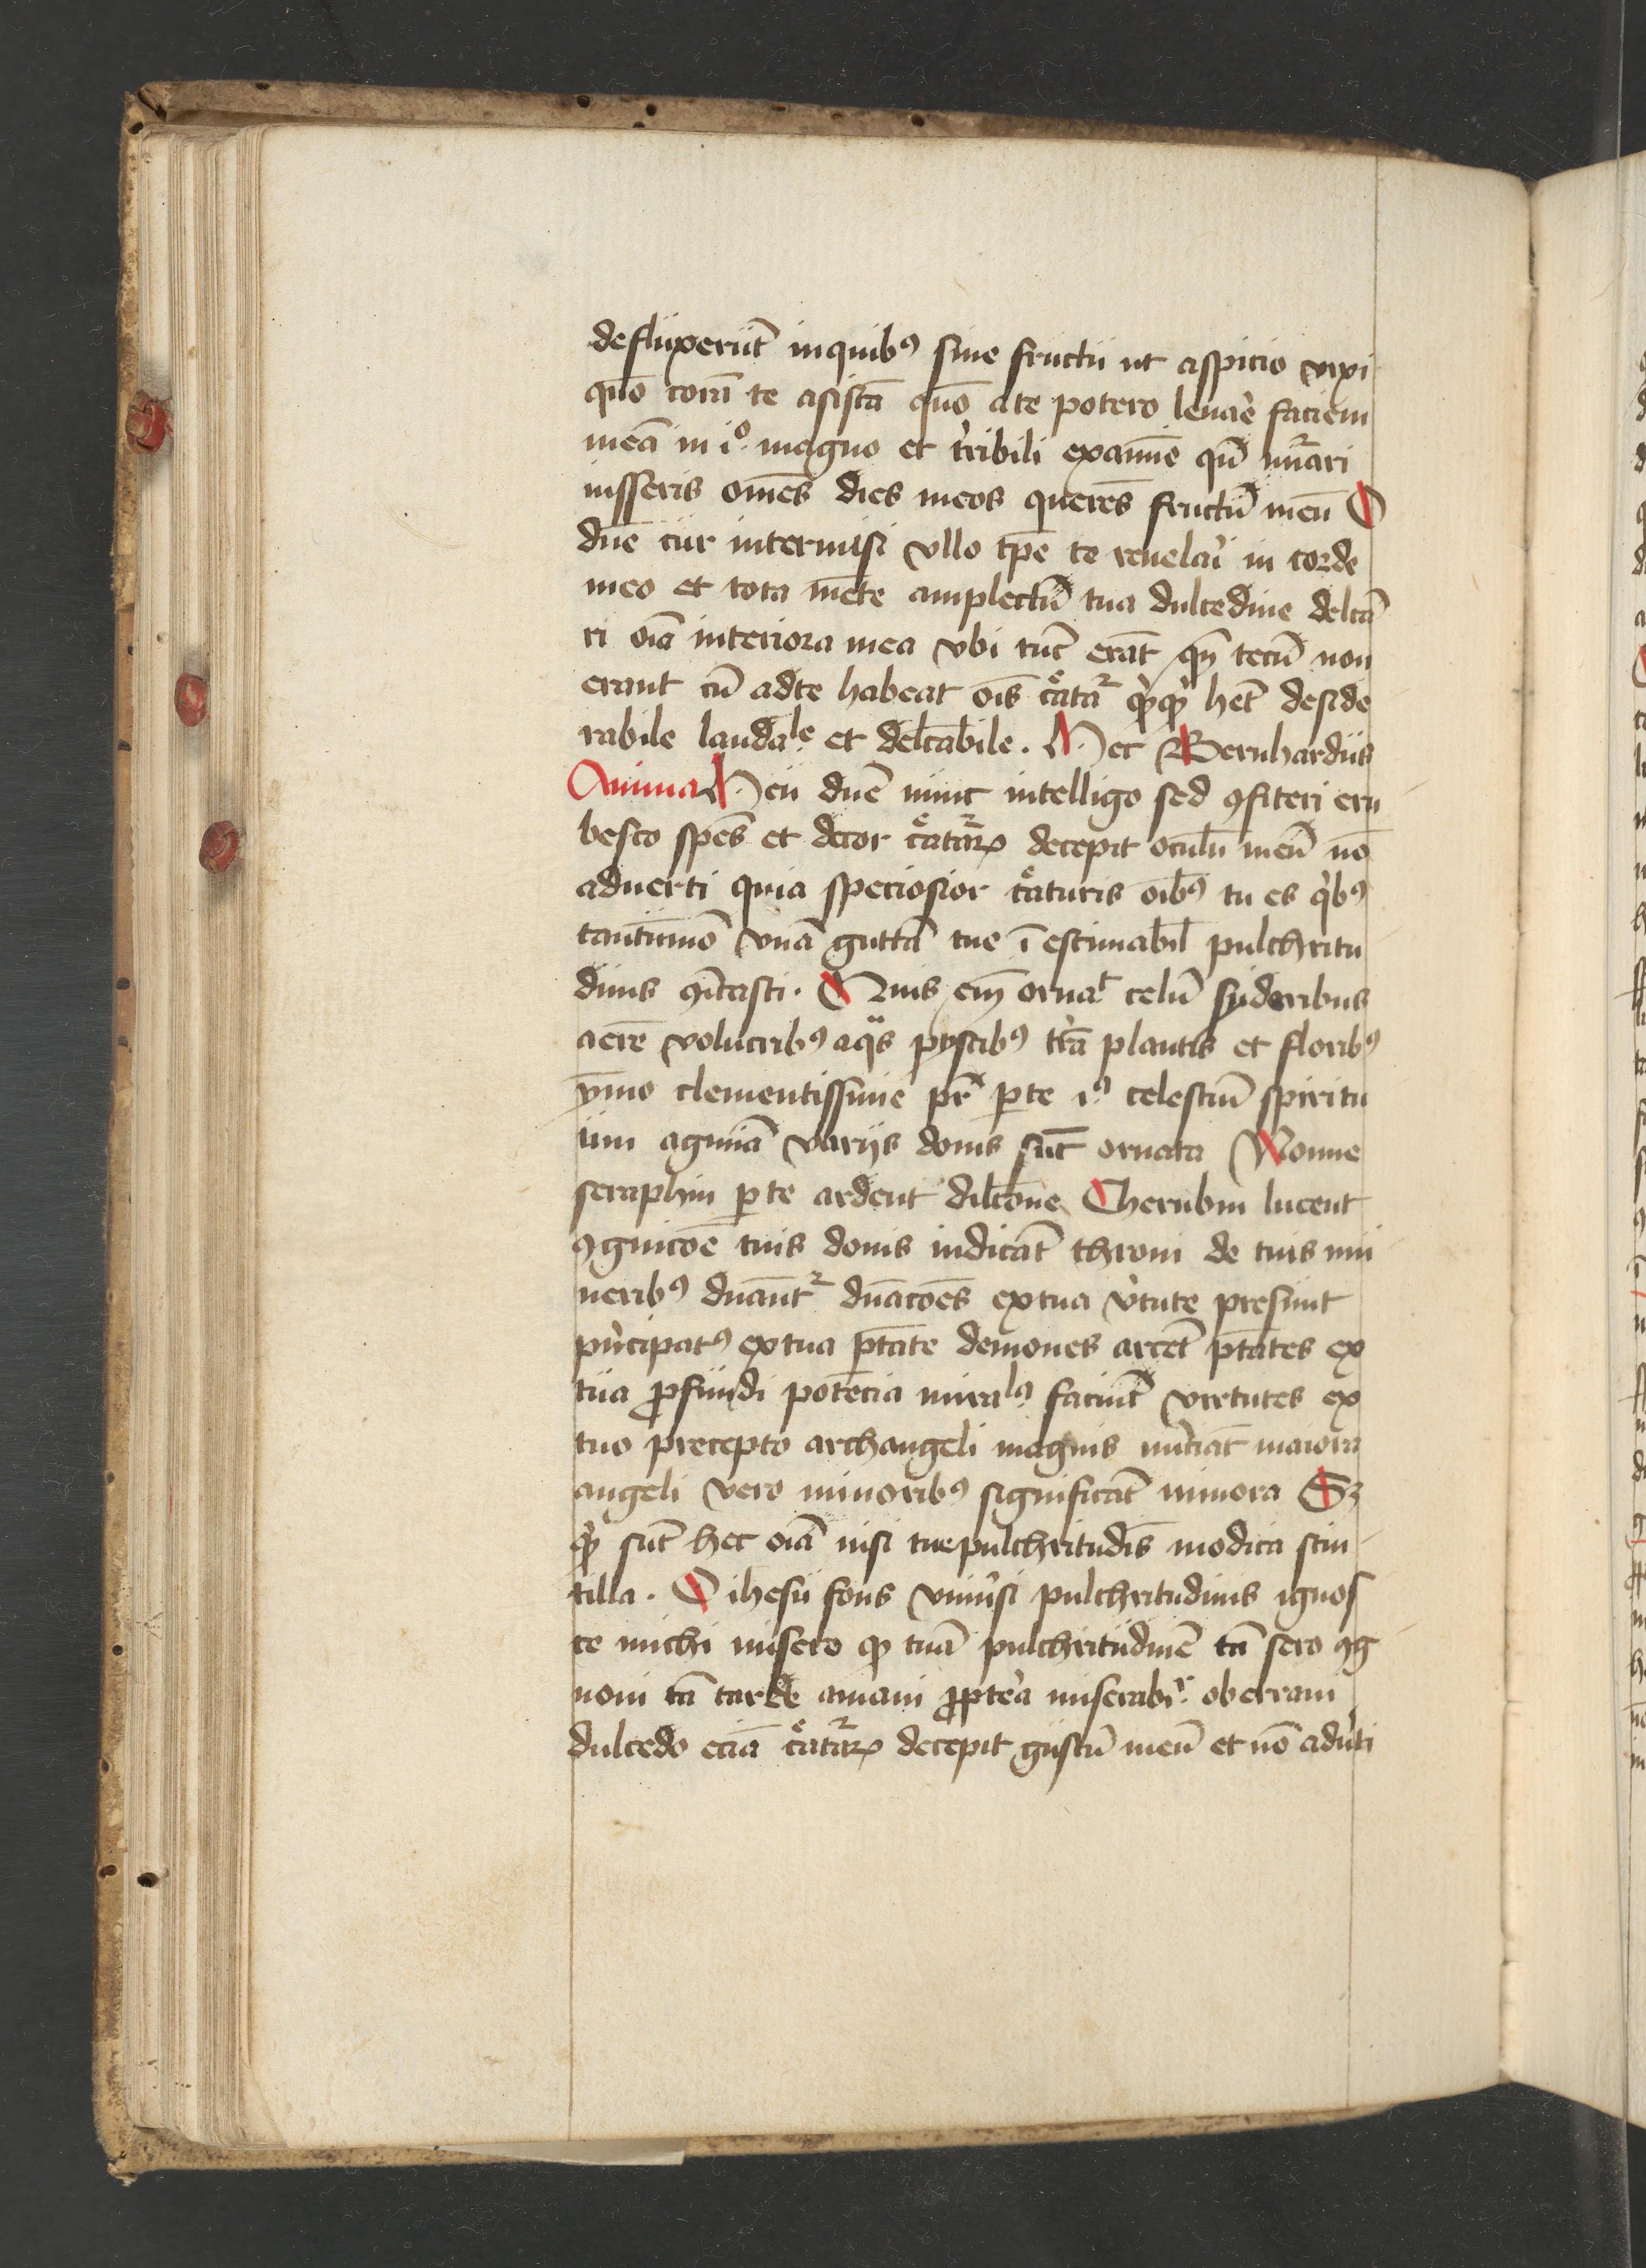 defluxerūt inquibꝰ sine fructu ut aspicio vixi
quō corā te asistā quō ate potero leuare faciem
meā in i.o magno et tribili examīe qn̄ nūari
iusseris om̄es dies meos querēs fructū meū O
dn̄e cur intermisi vllo tp̄e te reuelari in corde
meo et tota mēte amplectū tua dulcedine delcā
ri oīa interiora mea vbi tūc erāt qn̄ tecū non
erant cū adte habeat oīs cͤatᷓa qͥqͥ het deside
rabile laudale et delcabile. Hec Bernhardus
Anima Heu dn̄e nunc intelligo sed ꝯfiteri eru
besco spēs et decor cͤatᷓaꝝ decepit oculū meū nō
aduerti quia speciosior cͤaturis oībꝰ tu es qͥbꝰ
tantūmō vnā guttā tue īestimabil pulchritu
dinis ꝯīcasti. Quis em̄ ornat celū syderibus
aerē volucribꝰ aqͣs pyscibꝰ trā plantis et floribꝰ
ymo clementissime pr̄ ꝑte i.o celestiū spiritu
um agmīa varijs donis sūt ornata Nonne
seraphin ꝑte ardent dilcōne Cherubin lucent
ꝯgnicōe tuis donis iudicāt throni de tuis mu
neribꝰ dnāntᷣ dnācōes extua v̓tute presunt
pͥncipatꝰ extua ptāte demones arcēt ptātes ex
tua ꝓfundi potēcia miralꝰ faciūt virtutes ex
tuo precepto archangeli magnis nūciāt maiora
angeli vero minoribꝰ significāt minora Sꝫ
qͥ sūt hec oīa nisi tuepulchritudīs modica scin
tilla. O ihesu fons vniūsi pulchritudinis ignos
ce michi misero qꝫ tuā pulchritudinē tā sero ꝯg
noui tā tarde amaui ꝓpterea miserabir oberraui
dulcedo eciā cͤatᷓaꝝ decepit gustū meū et nō aduti